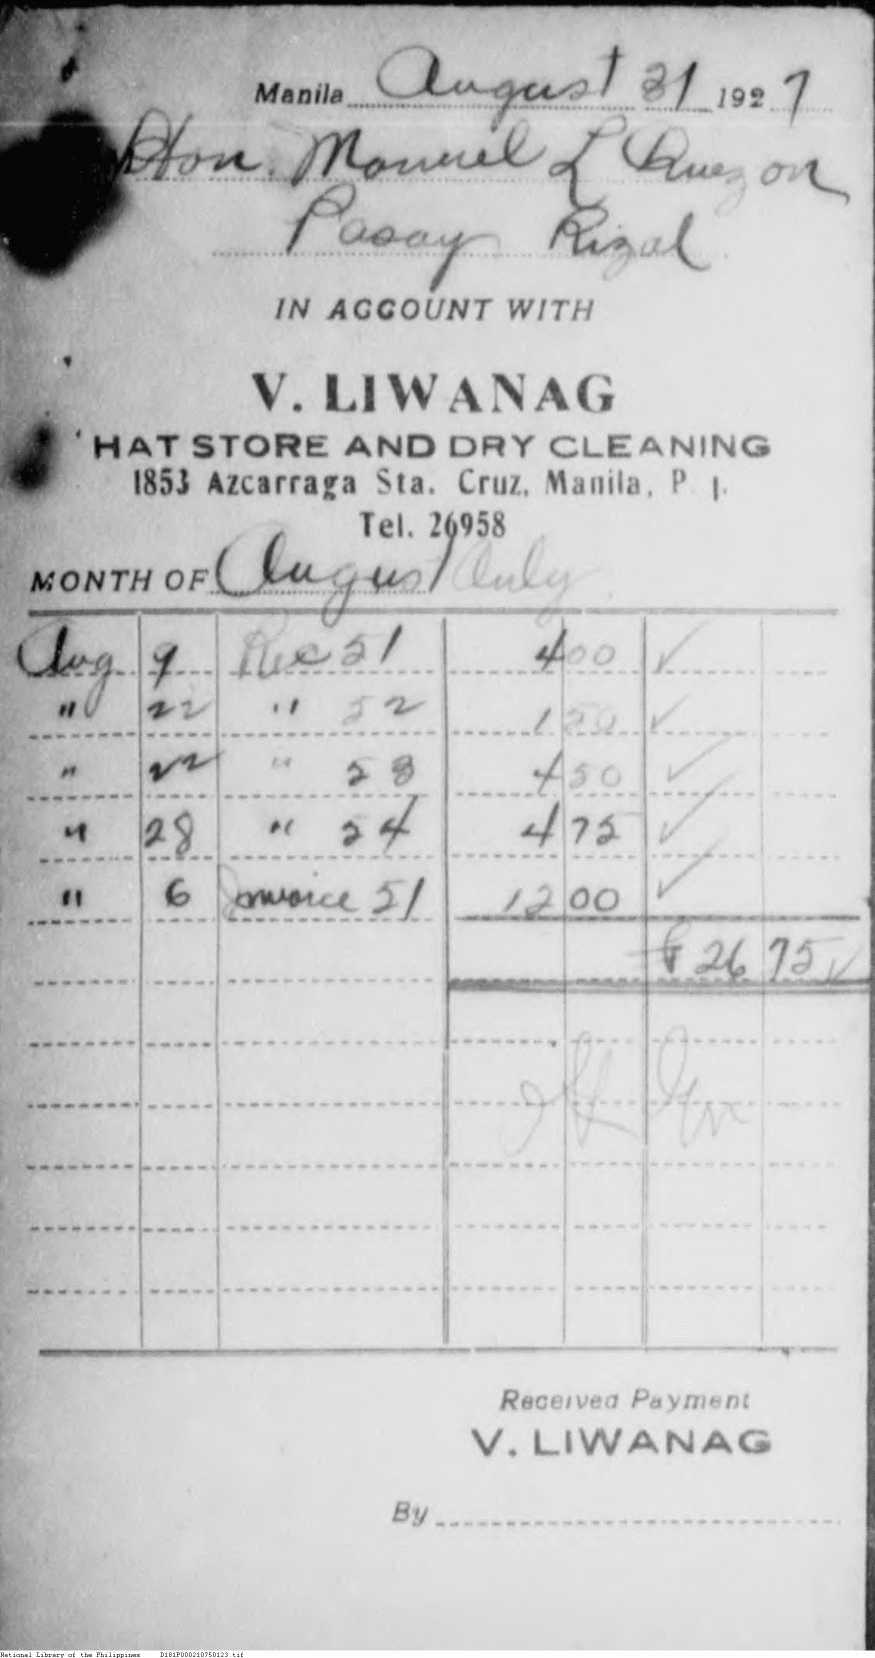 Manila August 31 1927
Hon. Manuel L Quezon
Pasay Rizal
IN ACCOUNT WITH
V. LIWANAG
HAT STORE AND DRY CLEANING
1853 Azcarraga Sta. Cruz, Manila, P. I.
Tel. 26958
MONTH OF August July
Aug 9 Rec 51 4 00 ✓
" 22 " 52 1 50 ✓
" 22 " 53 4 50 ✓
" 28 " 54 4 75 ✓
" 6 Invoice 51 12 00 ✓
₱ 26 75 ✓
Received Payment
V. LIWANAG
By
National Library of the Philippines D181P000210750123.tif